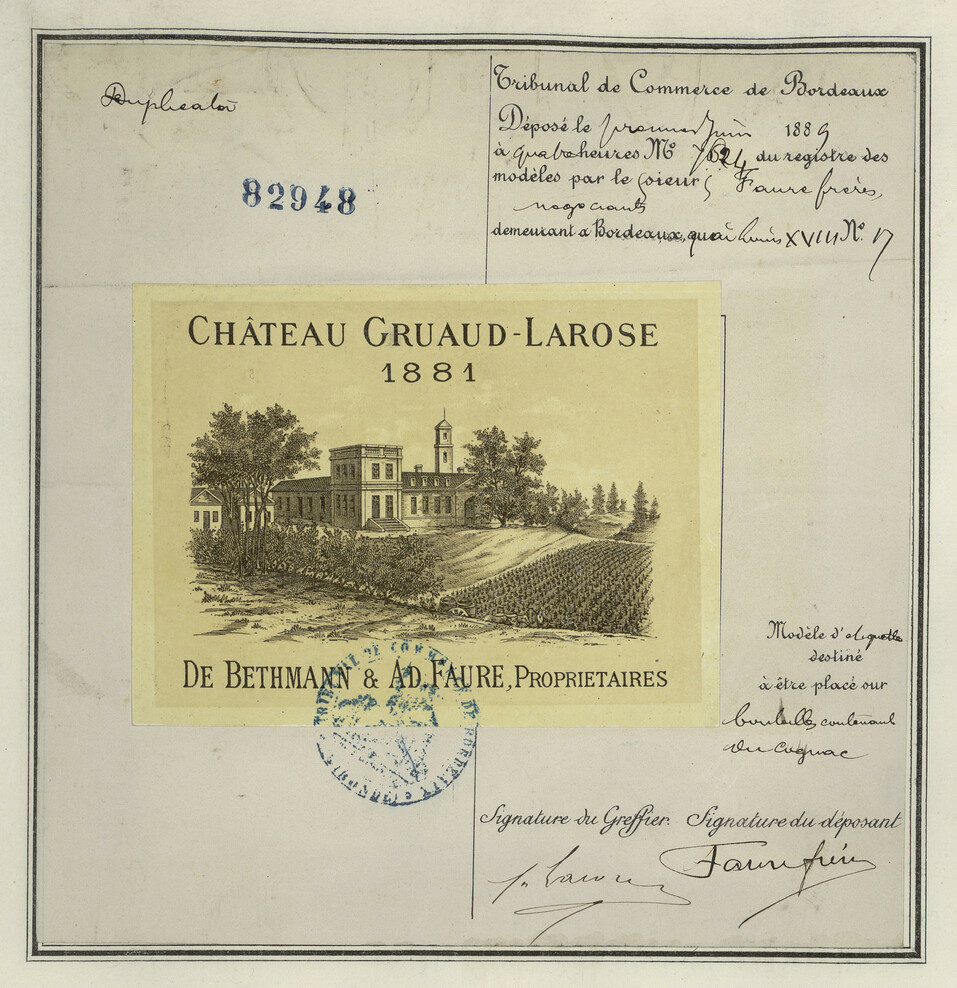 Duplicata
82948
Tribunal de Commerce de Bordeaux
Déposé le premier Juin 1889
à quatre heures Nº 7624 du registre des
modèles par le Sieurs Faure frères,
négociants
demeurant à Bordeaux, quai Louis XVIII Nº 17
CHÂTEAU GRUAUD-LAROSE
1881
DE BETHMANN & AD. FAURE, PROPRIETAIRES
TRIBUNAL DE COMMERCE DE BORDEAUX
(GIRONDE)
Modèle d'etiquette
destiné
à être placé sur
bouteilles contenant
du Cognac
Signature du Greffier. Signature du déposant
Faure frères